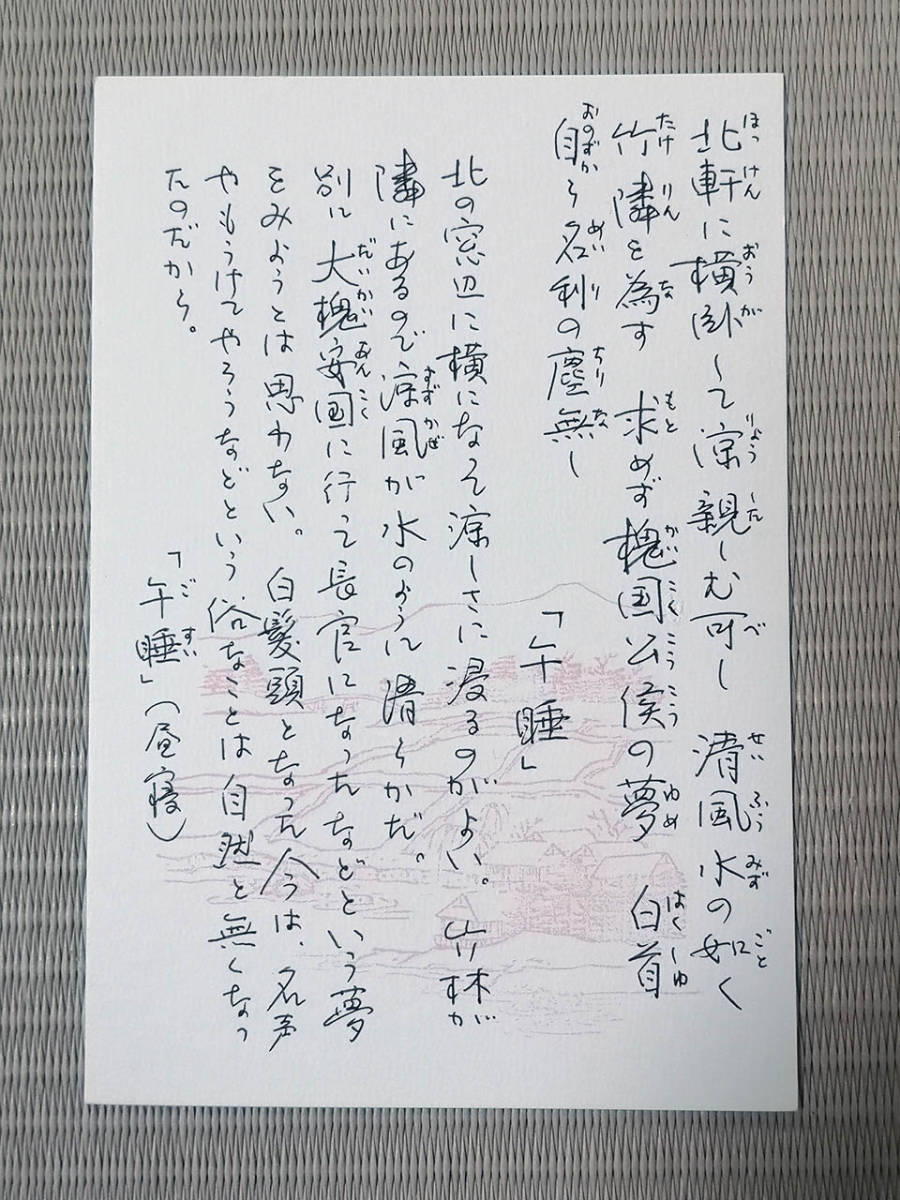 北軒に横臥して涼親しむ可し 清風水の如く
竹隣を為す 求めず槐国公侯の夢 白首
自ら名利の塵無し
「午睡」
北の窓辺に横になって涼しさに浸るのがよい。竹林が
隣にあるので涼風が水のように清らかだ。
別に大槐安国に行って長官になったなどという夢
をみようとは思わない。白髪頭となった今は、名声
やもうけてやろうなどという俗なことは自然と無くなっ
たのだから。
「午睡」(昼寝)